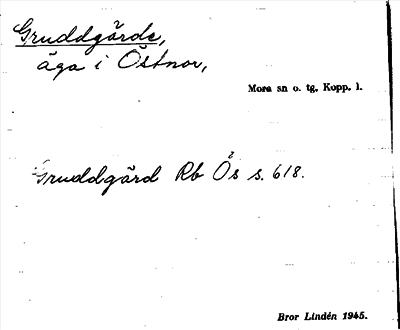 Gruddgårde,
äga i Östnor,
Mora sn o. tg. Kopp. l.
Gruddgård Rb Ös s. 618.
Bror Lindén 1945.